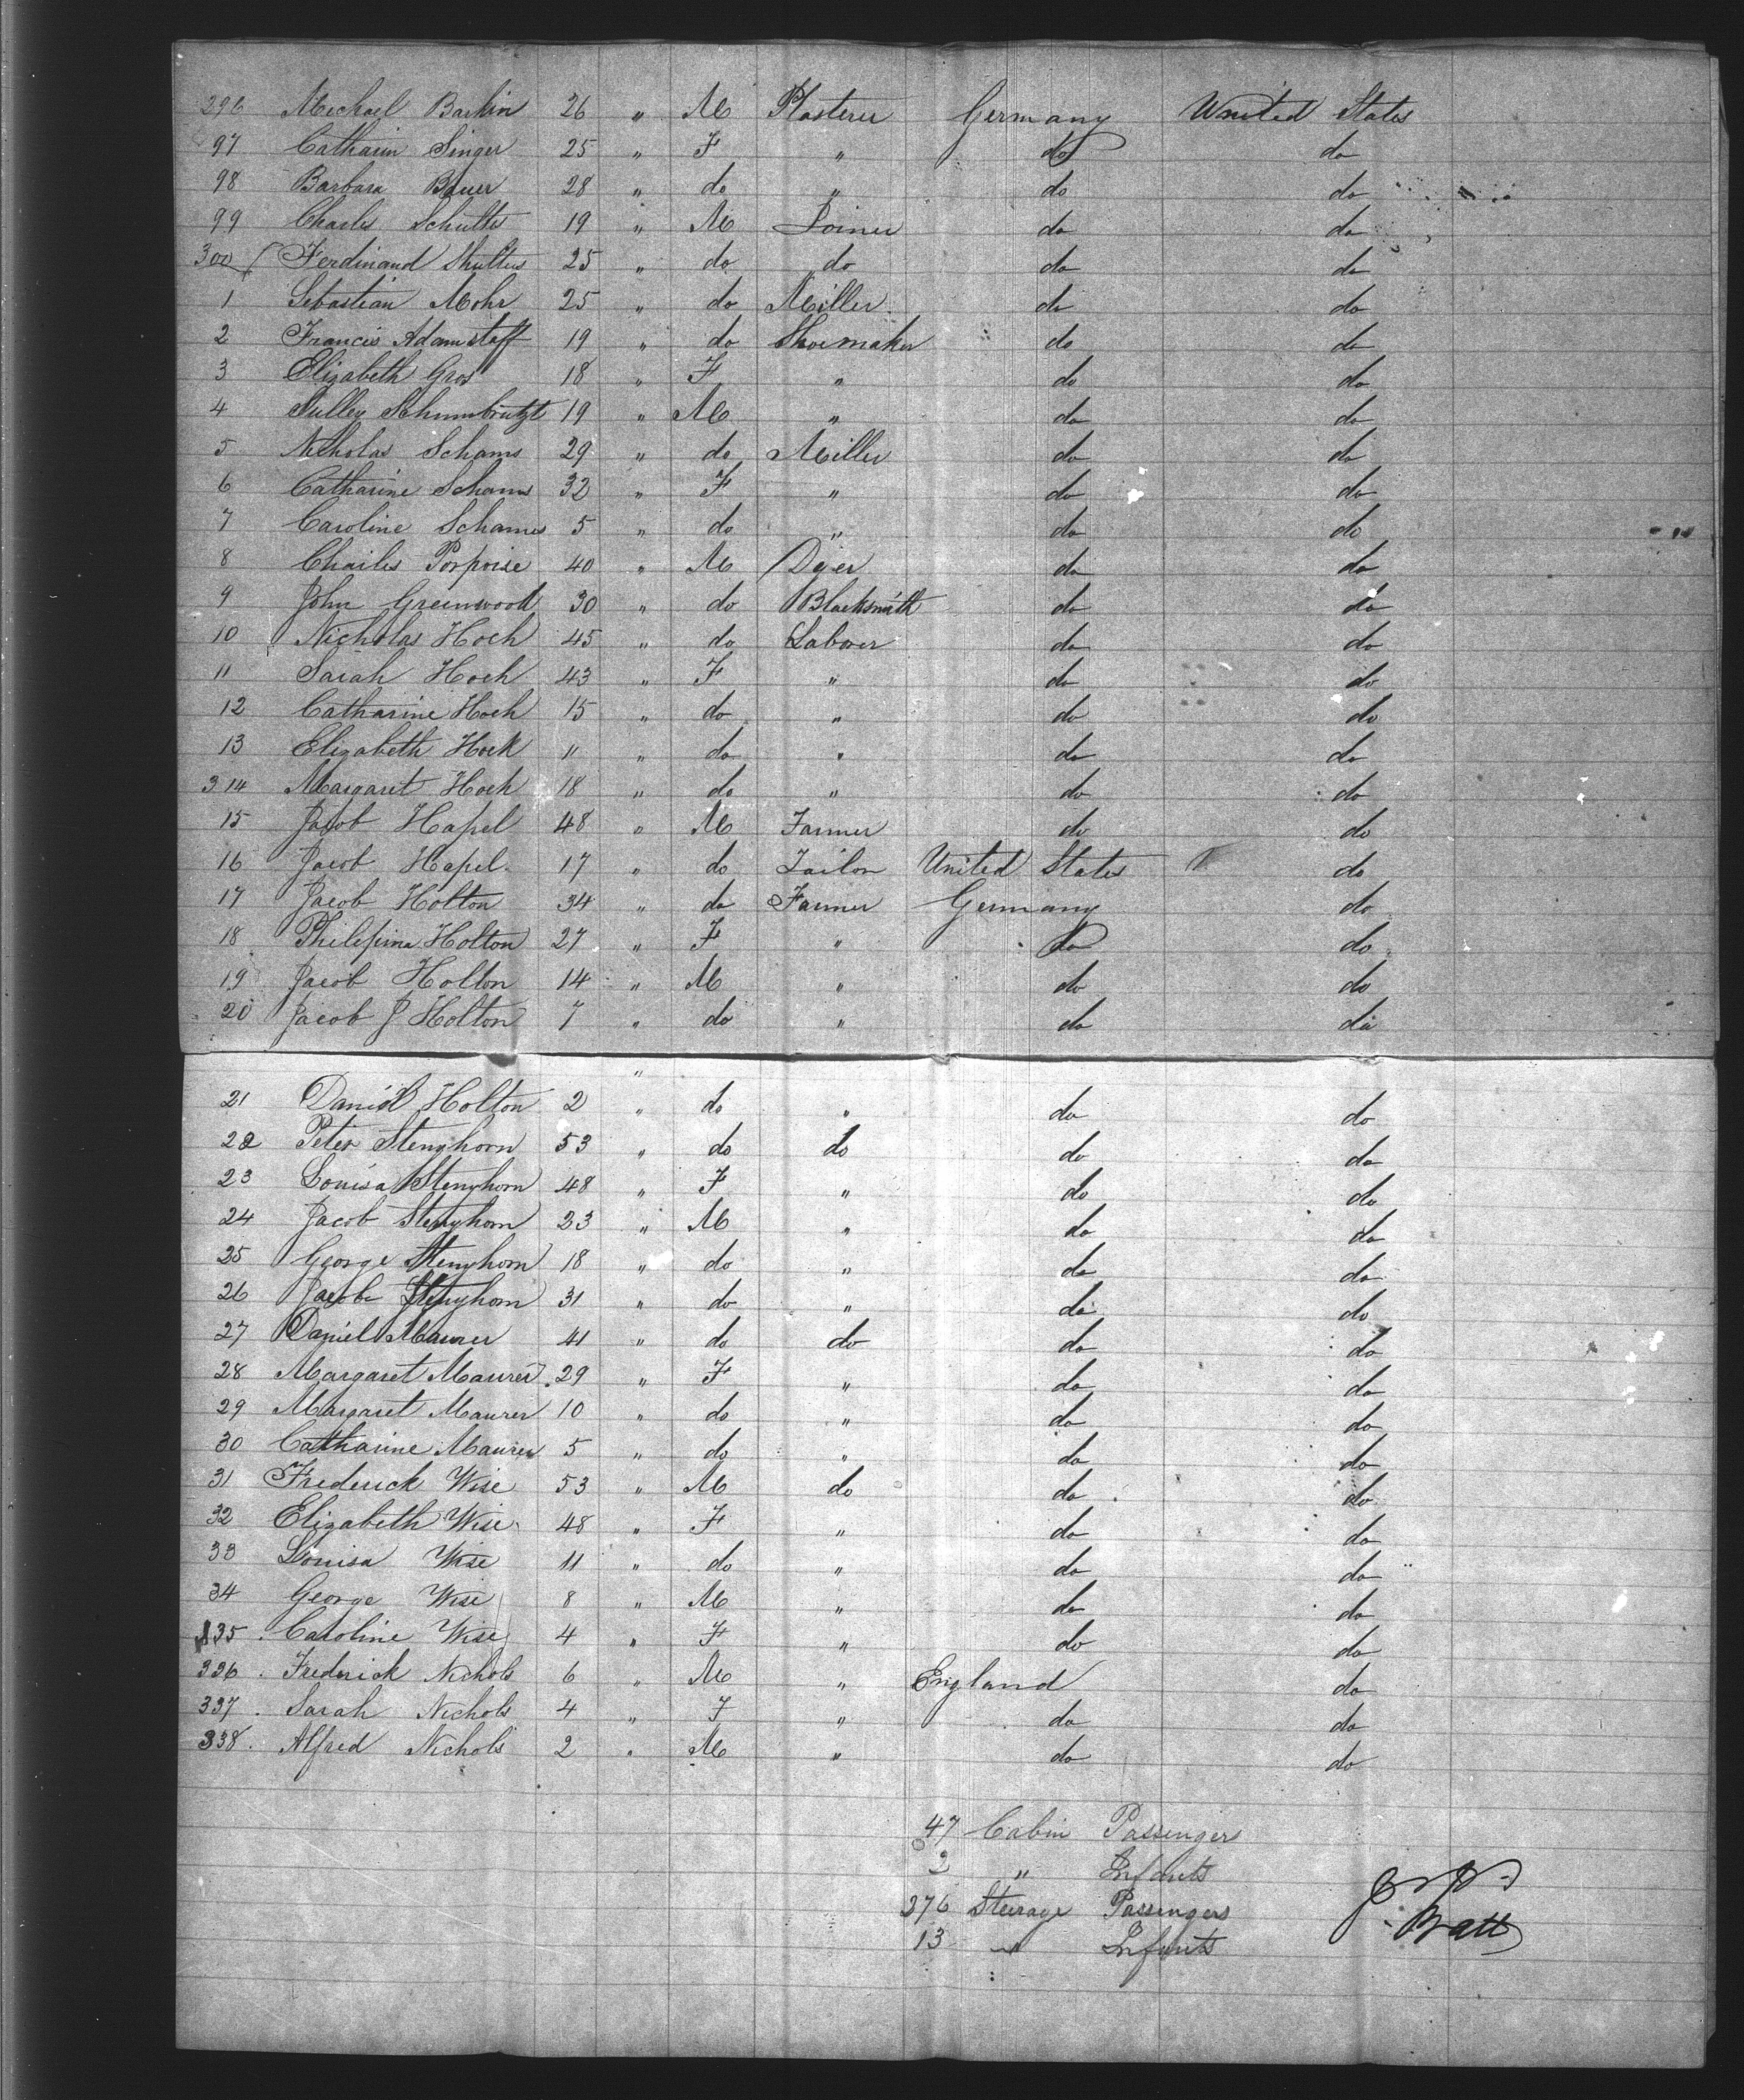 296 Michael Barkin 26 " M Plasterer Germany United States
97 Catharin Singer 25 " F " do do
98 Barbara Bauer 28 " do " do do
99 Charles Schults 19 " M Joiner do do
300 Ferdinand Shultus 25 " do do do do
1 Sebastian Mohr 25 " do Miller do do
2 Francis Adamstaff 19 " do Shoemaker do do
3 Elizabeth Gros 18 " F " do do
4 19 " M " do do
5 Nicholas Schams 29 " do Miller do do
6 Catharine Schams 32 " F " do do
7 Caroline Schames 5 " do " do do
8 Charles Porpoise 40 " M Dyer do do
9 John Greenwood 30 " do Blacksmith do do
10 Nicholas Hoch 45 " do Labower do do
11 Sarah Hoch 43 " F " do do
12 Catharine Hoch 15 " do " do do
13 Elizabeth Hock 11 " do " do do
314 Margaret Hoch 18 " do " do do
15 Jacob Hapel 48 " M Farmer do do
16 Jacob Hapel 17 " do Tailor United States do
17 Jacob Holton 34 " do Farmer Germany do
18 Philipina Holton 27 " F " do do
19 Jacob Holton 14 " M " do do
20 Jacob J Holton 7 " do " do do
21 Daniel Holton 2 " do " do do
22 Peter Stenghorn 53 " do do do do
23 Louisa Stenghorn 48 " F " do do
24 Jacob Stenghorn 23 " M " do do
25 George Stenghorn 18 " do " do do
26 Jacob Stenghorn 31 " do " do do
27 Daniel Maurer 41 " do do do do
28 Margaret Maurer 29 " F " do do
29 Margaret Maurer 10 " do " do do
30 Catharine Maurer 5 " do " do do
31 Frederick Wise 53 " M do do do
32 Elizabeth Wise 48 " F " do do
33 Louisa Wise 11 " do " do do
34 George Wise 8 " M " do do
335 Caroline Wise 4 " F " do do
336 Frederick Nichols 6 " M " England do
337 Sarah Nichols 4 " F " do do
338 Alfred Nichols 2 " M " do do
47 Cabin Passengers
2 " Infants
276 Steerage Passengers
13 " Infants